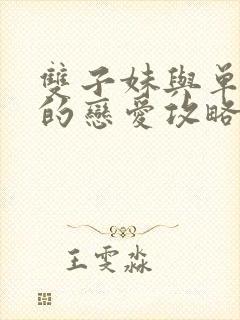 雙子妹與單
的戀愛攻略
王雯淼